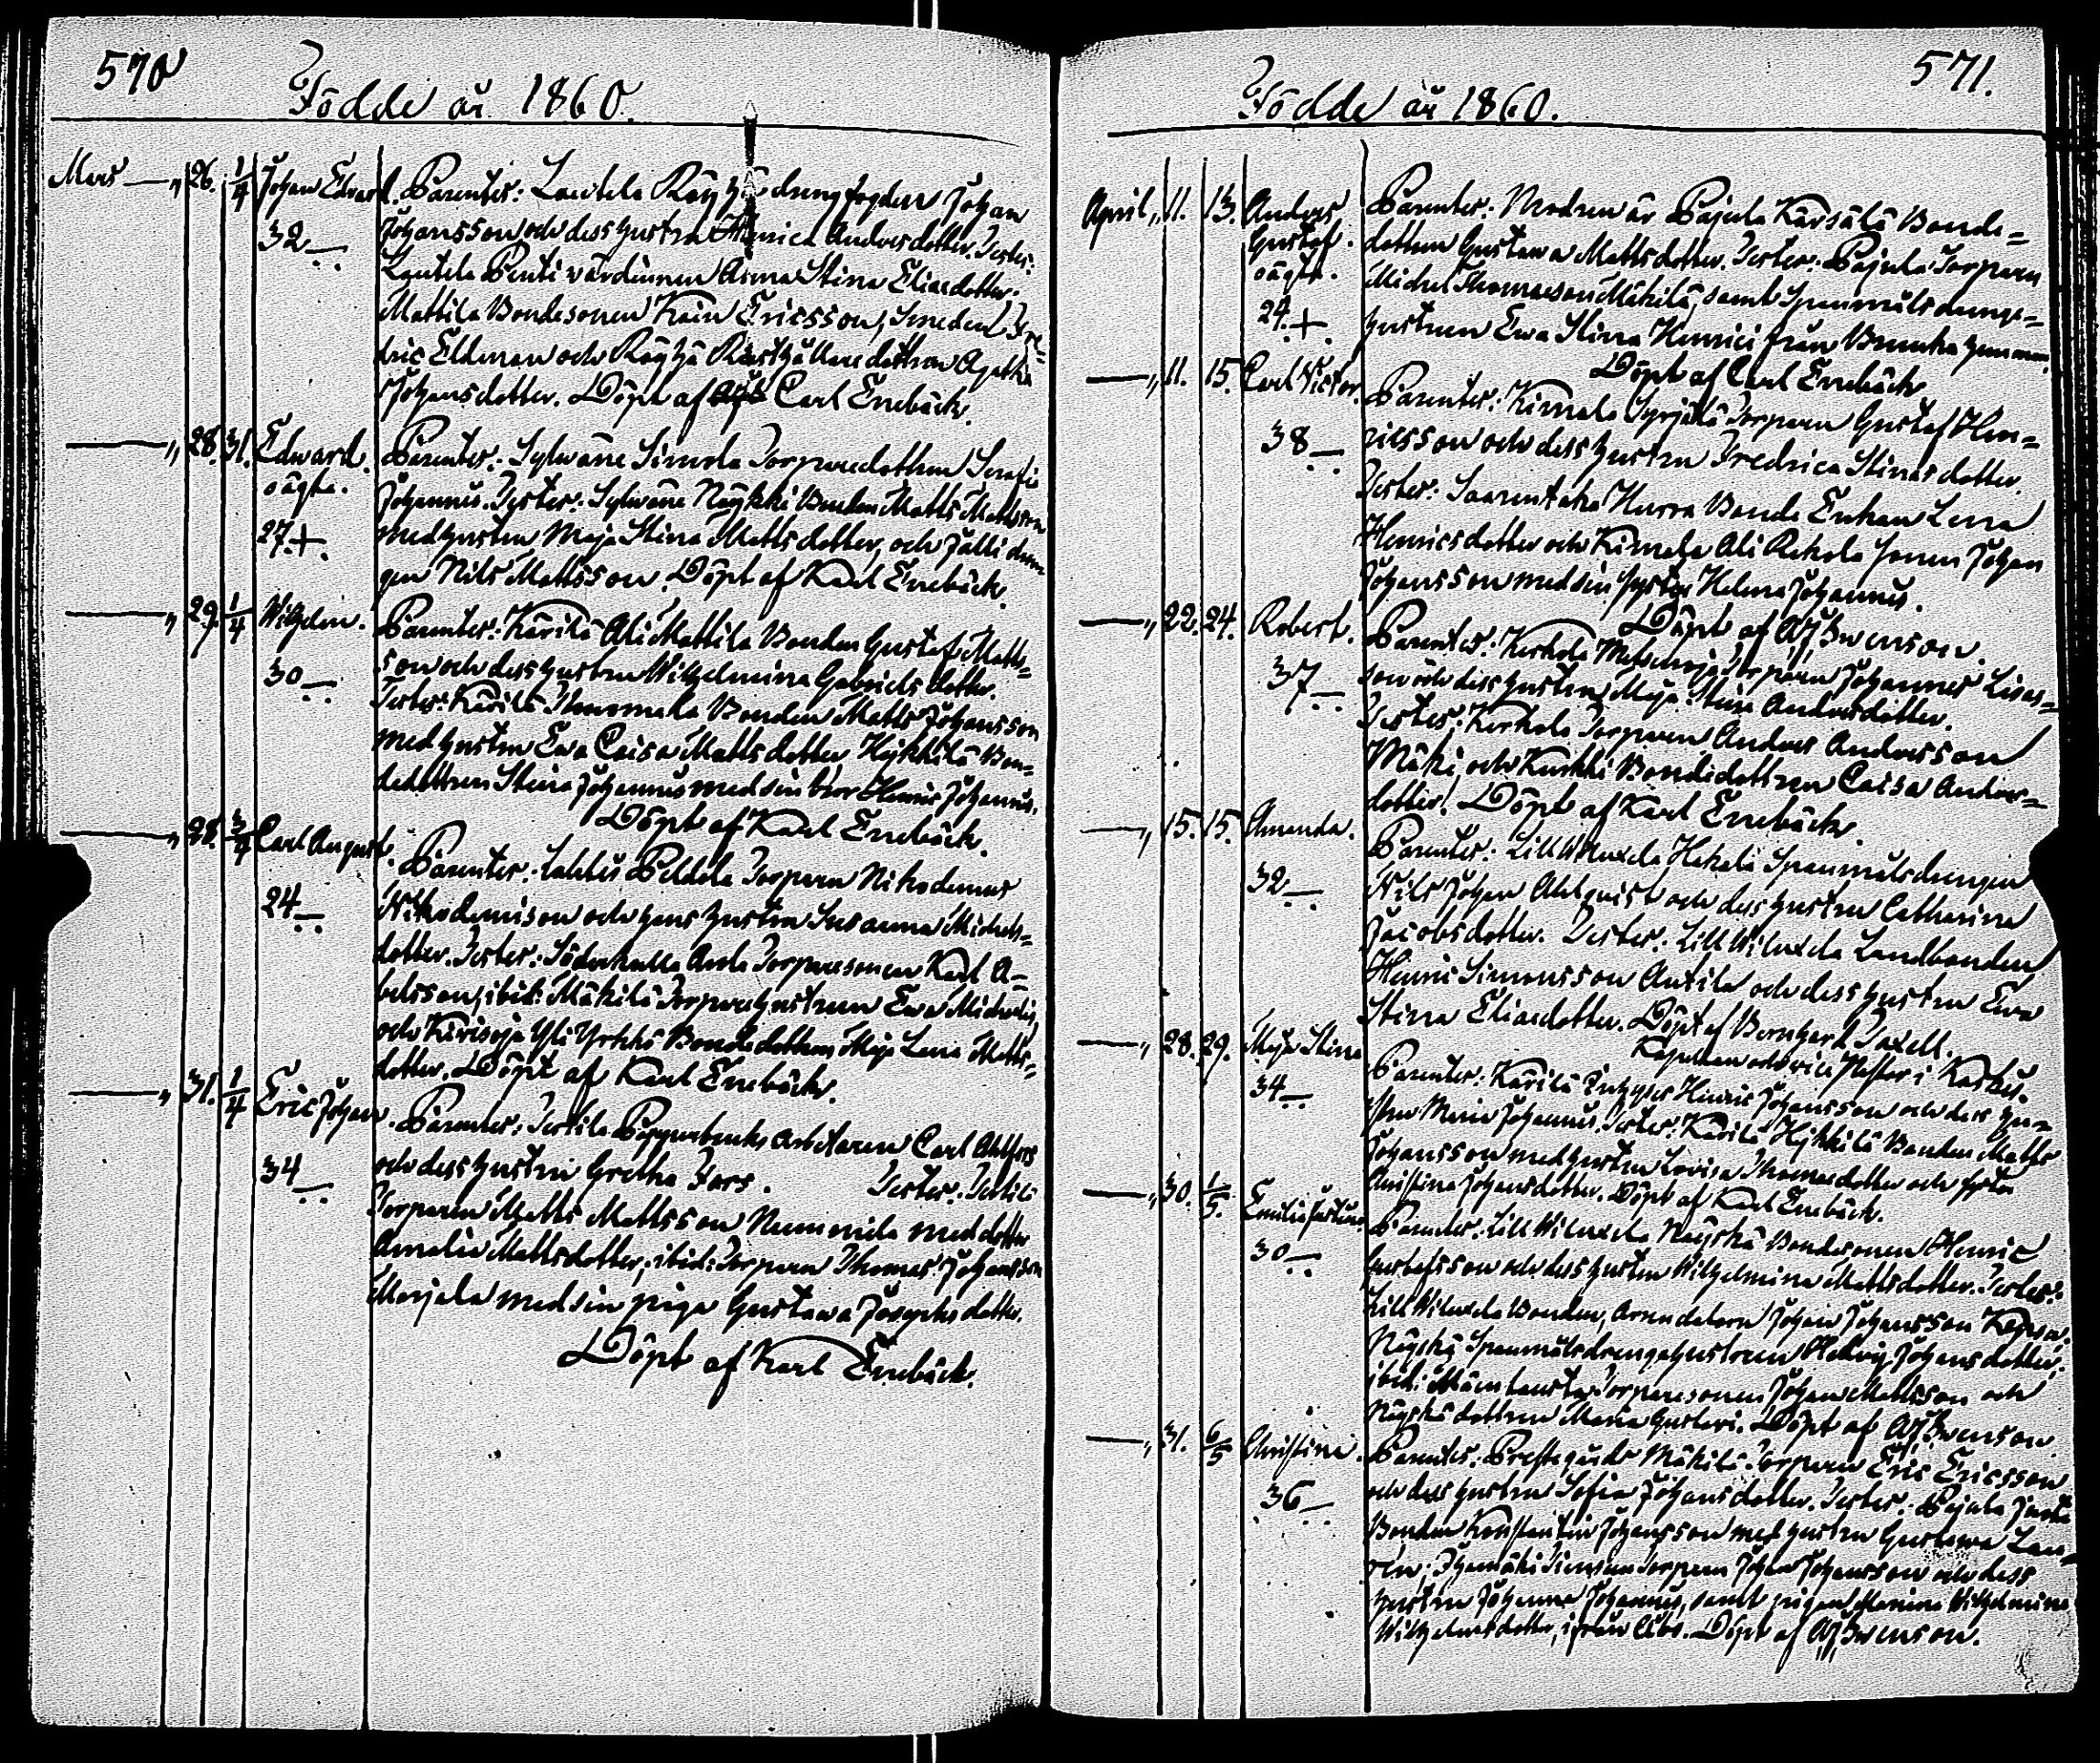 570
Födde år 1860.
Mars — „ 26. 1/4 Johan Edvard. Parenter: Lautela drengfogden Johan
32 — Johansson och dess hustru Henrica Andersdotter. Tester:
Lautela Penti värdinnan Anna Stina Eliaedotter.
Mattila Bondesonen Ericsson, Smeden Fre=
dric Ekman och Rusthållare dottren Agatha
Johansdotter. Döpt af Carl Enebäck.
— „ 28. 31. Edward. Parenter: Sylwäne Simola Torparedottren Serafia
oägta. Johannis. Tester: Sylwäne Näykki Bonden Matts Mattsson
27. + med hustru Maja Stina Mattsdotter, och Jalli dren
gen Nils Mattsson. Döpt af Karl Enebäck.
— „ 29. 1/4 Wilhelm. Parenter: Kärilä Ali Mattila Bonden Gustaf Matts=
30 — son och dess hustru Wilhelmina Gabrielsdotter.
Tester: Kärilä Bonden Matts Johansson
med hustru Ewa Caisa Mattsdotter Hykkilä Bon=
dedottren Stina Johannis med sin bror Henric Johannis.
Döpt af Karl Enebäck.
— „ 28. 3/4 Carl August. Parenter: Peldola Torparen Nikodemus
24 — Nikodemison och hans hustru Susanna Michels=
dotter. Tester: Torparesonen Karl A=
belsson, ibid: Mäkilä Torparehustrun Ewa Michelis,
och Kirisoja Yli Bondedottren Maja Lena Matts=
dotter. Döpt af Karl Enebäck.
— „ 31. 1/4 Eric Johan. Parenter: Arbetaren Carl Ahlfors
34 — och dess hustru Gretha Fors. Tester:
Torparen Matts Mattsson Nummila med dotter
Amalia Mattsdotter, ibid: Torparen Thomas Johansson
Marjala med sin piga Gustawa Josephsdotter.
Döpt af Karl Enebäck.
571.
Födde år 1860.
April „ 11. 13. Anders Parenter: Modren är Pajula Kärsälä Bonde=
Gustaf. dottren Gustawa Mattsdotter. Tester: Pajula Torparen
oägta. Michel Thomasson Mäkilä, samt Spanmålsdrenge=
24. + hustrun Ewa Stina Henrici från hemman.
Döpt af Carl Enebäck
— „ 11. 15. Carl Victor. Parenter: Kimala Syrjälä Torparen Gustaf Hen=
38 — ricsson och dess hustru Fredrica Stinasdotter.
Tester: Bonde Enkan Lena
Henricsdotter och Kimala Ali Rekola sonen Johan
Johansson med sin syster Helena Johannis.
Döpt af AJ Swenson.
— „ 22. 24. Robert. Parenter: Kerkola Torparen Johannes Lisas=
37 — son och dess hustru Maja Stina Andersdotter.
Tester: Kerkola Torparen Anders Andersson
Mäki, och Kurkki Bondedottren Caisa Anders=
dotter. Döpt af Karl Enebäck.
— „ 15. 15. Amanda. Parenter: Hakala Spanmålsdrengen
32 — Nils Johan Ahlqvist och dess hustru Catharina
Jacobsdotter. Tester: Landbonden
Henric Simonsson Antila och dess hustru Ewa
Stina Eliaedotter. Döpt af Bernhard Taxell.
Kapellan och vice Pastor i Karkus.
— „ 28. 29. Maja Stina Parenter: Kärilä Henric Johansson och dess hu=
34 — stru Maria Johannis. Tester: Kärilä Hykkilä Bonden Matts
Johansson med hustru Lovisa Thomasdotter och syster
Christina Johansdotter. Döpt af Karl Enebäck.
— „ 30. 1/5. Emilia Justina Parenter: Näyskä Bondesonen Henric
30 — Gustafsson och dess hustru Wilhelmina Mattsdotter. Tester:
Bonden, Arrendatorn Johan Johansson
Näyskä Spanmålsdrengehustrun Hedvig Johansdotter.
ibid: Torparesonen Johan Mattsson och
Näyskä dottren Maria Gustavi. Döpt af AJ Swenson
— „ 31. 6/5 Christina. Parenter: Prestegårds Mäkilä Torparen Eric Ericsson
36 — och dess hustru Sofia Johansdotter. Tester: Pajula
Bonden Konstantin Johansson med hustru Gustawa Lau=
rén; Torparen Johan Johansson och dess
hustru Johanna Johannis, samt pigan Wilhelmina
Wilhelmsdotter, ifrån Åbo. Döpt af AJ Swenson.